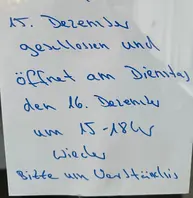 15. Dezember
geschlossen und
öffnet am Dienstag
den 16. Dezember
um 15-18 Uhr
wieder
Bitte um Verständnis